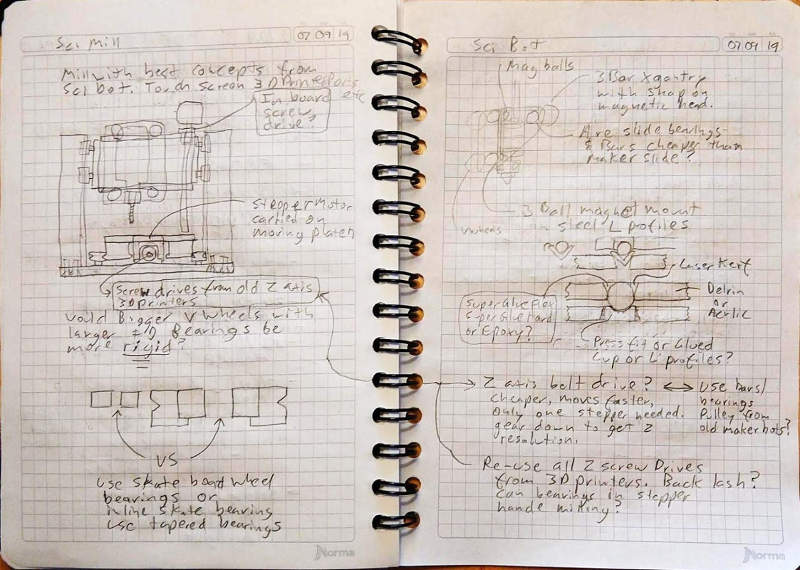 Sci Mill
07 09 19
Mill with best concepts from
Sci bot. Touch Screen 3D Printer Parts etc
In board
screw
drive?
Stepper motor
carried on
moving platen
Screw drives from old Z axis
3D printers
Would Bigger V Wheels with
larger ID Bearings be
more rigid?
VS
use skate board wheel
bearings or
inline skate bearing
use tapered bearings
Norma
Sci Bot
07 09 19
Mag balls
3 Bar X gantry
with snap on
magnetic head.
Are slide bearings
& Bars cheaper than
maker slide?
V wheels
3 Ball magnet mount
in steel L profiles
Laser Kerf
Delrin
or
Acrylic
Super Glue Flex
Super Glue Hard
or Epoxy?
Press fit or Glued
Cup or L profiles?
Z axis belt drive?
cheaper, moves faster,
only one stepper needed.
gear down to get Z
resolution.
use bars/
bearings
Pulley from
old makerbots?
Re-use all Z screw Drives
from 3D printers. Back lash?
can bearings in stepper
handle milling?
Norma